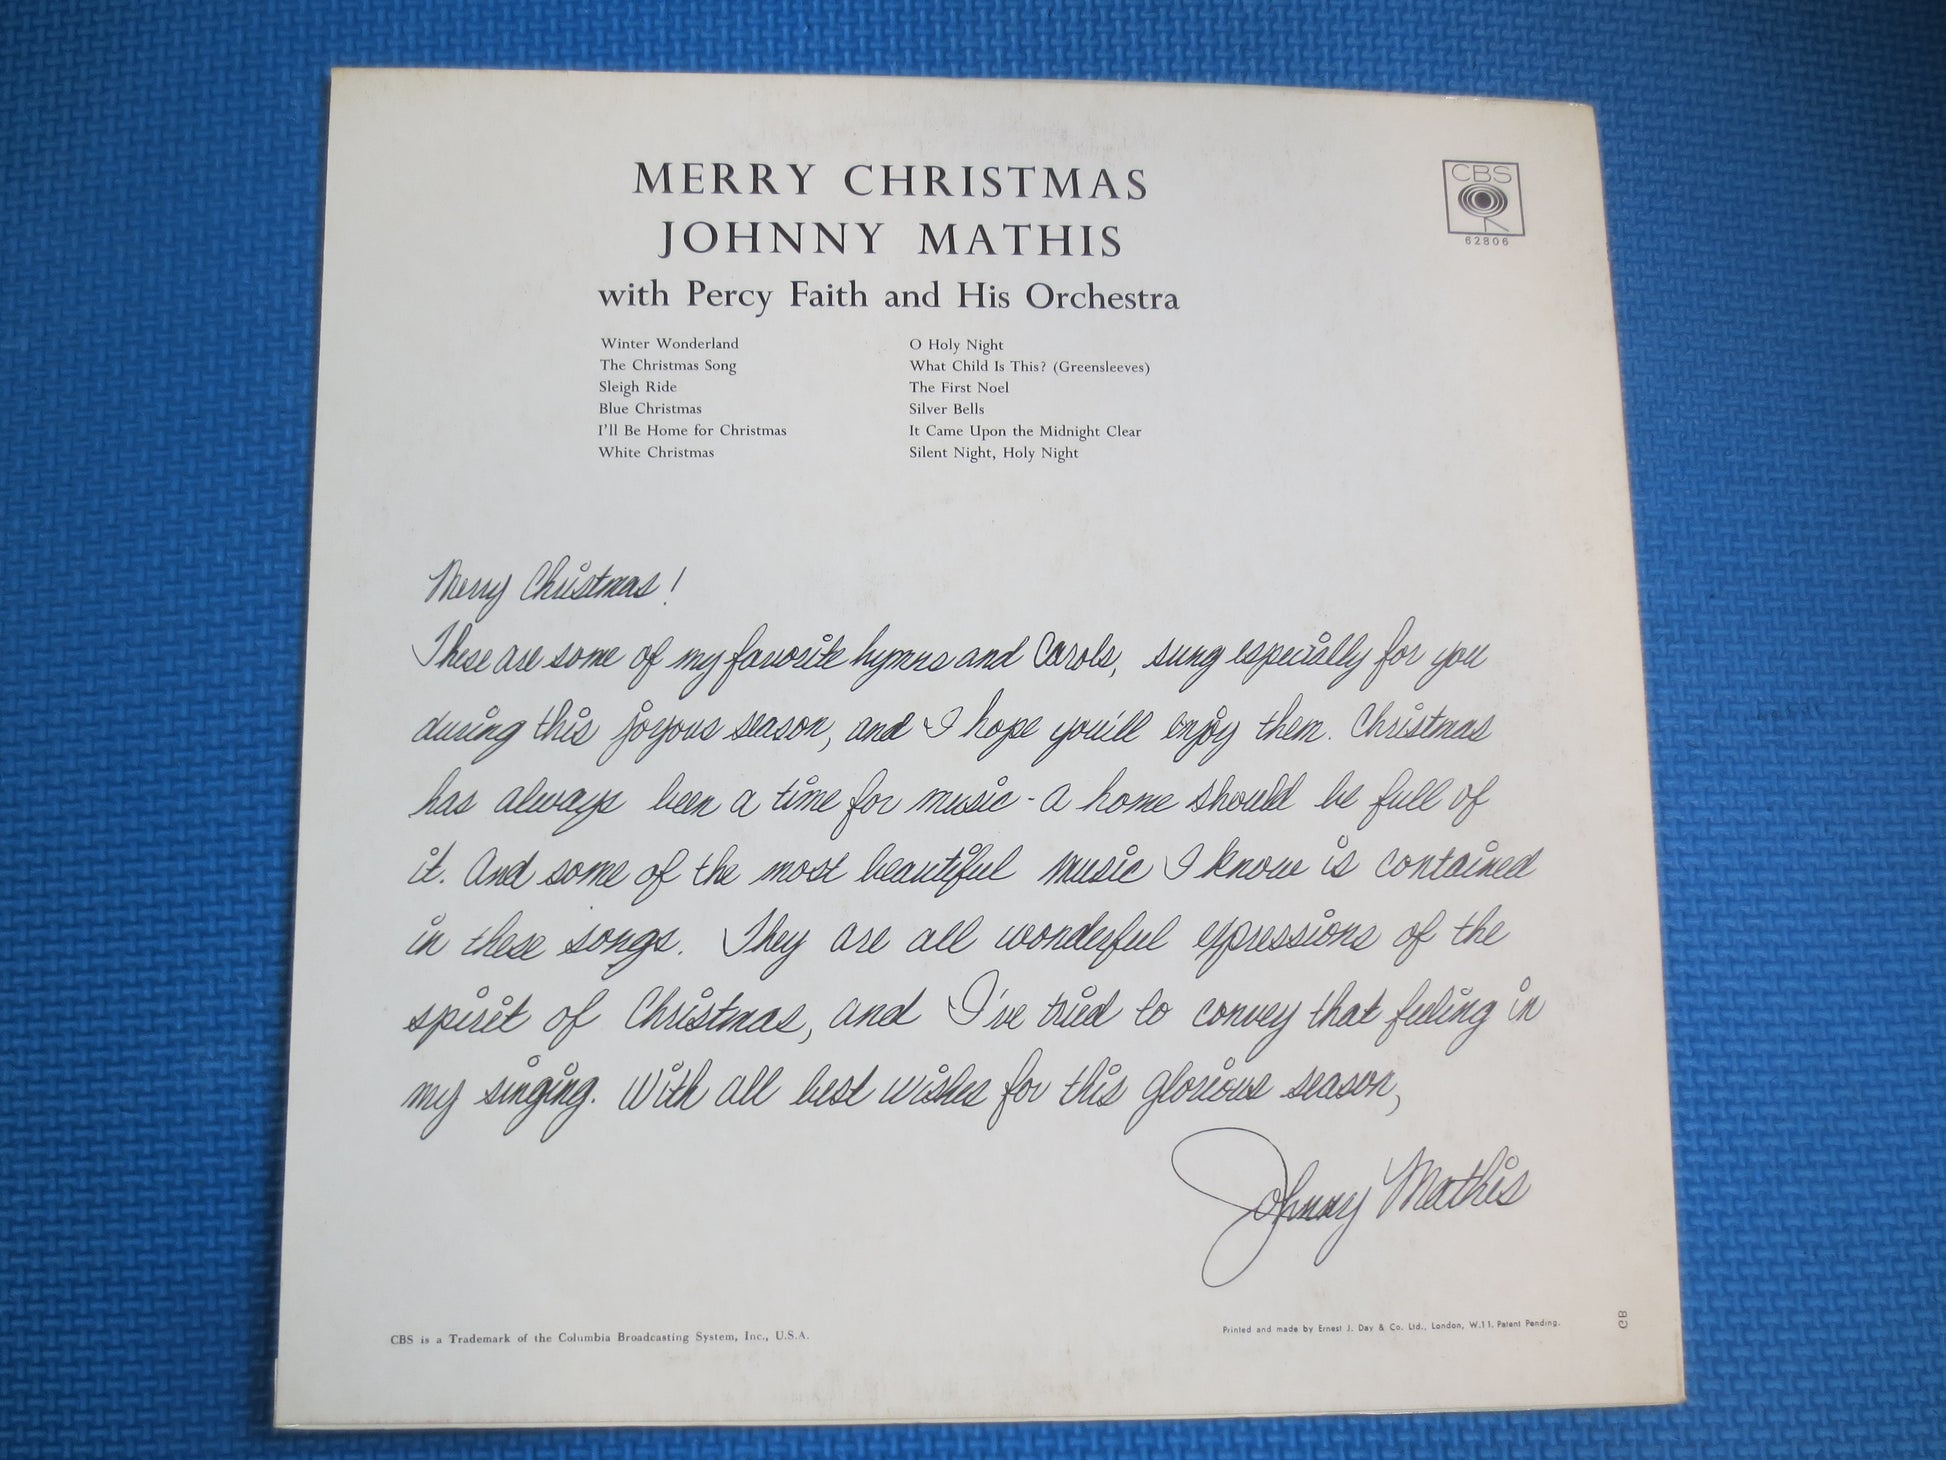 MERRY CHRISTMAS
JOHNNY MATHIS
with Percy Faith and His Orchestra
CBS
62806
Winter Wonderland
The Christmas Song
Sleigh Ride
Blue Christmas
I'll Be Home for Christmas
White Christmas
O Holy Night
What Child Is This? (Greensleeves)
The First Noel
Silver Bells
It Came Upon the Midnight Clear
Silent Night, Holy Night
Merry Christmas!
These are some of my favorite hymns and Carols, sung especially for you
during this joyous season, and I hope you'll enjoy them. Christmas
has always been a time for music - a home should be full of
it. And some of the most beautiful music I know is contained
in these songs. They are all wonderful expressions of the
spirit of Christmas, and I've tried to convey that feeling in
my singing. With all best wishes for this glorious season,
Johnny Mathis
CBS is a Trademark of the Columbia Broadcasting System, Inc., U.S.A.
Printed and made by Ernest J. Day & Co. Ltd., London, W.11. Patent Pending.
CB